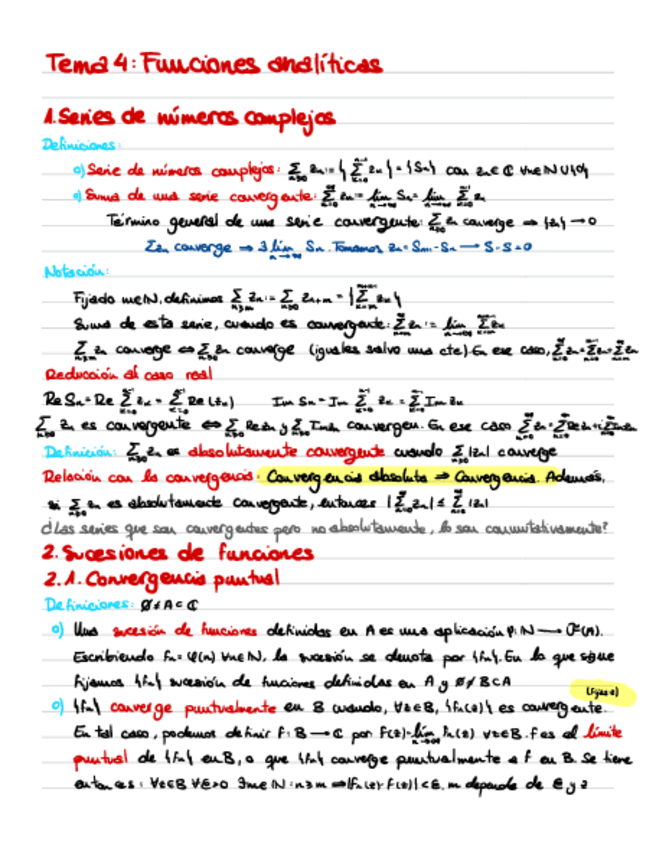 Tema 4: Funciones analíticas
1. Series de números complejos
Definiciones:
o) Serie de números complejos: Σ_{n≥0} zn := { Σ_{k=0}^{n-1} zk } = {Sn} con zn∈ℂ ∀n∈ℕ∪{0}
o) Suma de una serie convergente: Σ_{n=0}^{∞} zn = lim_{n→∞} Sn = lim_{n→∞} Σ_{k=0}^{n-1} zk
Término general de una serie convergente: Σ_{n≥0} zn converge ⇒ {zn} → 0
Σzn converge ⇒ ∃ lim_{n→∞} Sn. Tomamos zn = Sn+1 - Sn → S-S=0
Notación:
Fijado m∈ℕ, definimos Σ_{n≥m} zn := Σ_{n≥0} zn+m = { Σ_{k=m}^{n+m-1} zk }
Suma de esta serie, cuando es convergente: Σ_{n=m}^{∞} zn := lim_{n→∞} Σ_{k=m}^{n+m-1} zk
Σ_{n≥m} zn converge ⇔ Σ_{n≥0} zn converge (iguales salvo una cte) En ese caso, Σ_{n=0}^{∞} zn = Σ_{n=0}^{m-1} zn + Σ_{n=m}^{∞} zn
Reducción al caso real
Re Sn = Re Σ_{k=0}^{n-1} zk = Σ_{k=0}^{n-1} Re(zk) Im Sn = Im Σ_{k=0}^{n-1} zk = Σ_{k=0}^{n-1} Im zk
Σ_{n≥0} zn es convergente ⇔ Σ_{n≥0} Re zn y Σ_{n≥0} Im zn convergen. En ese caso Σ_{n=0}^{∞} zn = Σ_{n=0}^{∞} Re zn + i Σ_{n=0}^{∞} Im zn
Definición: Σ_{n≥0} zn es absolutamente convergente cuando Σ_{n≥0} |zn| converge
Relación con la convergencia: Convergencia absoluta ⇒ Convergencia. Además,
si Σ_{n≥0} zn es absolutamente convergente, entonces |Σ_{n=0}^{∞} zn| ≤ Σ_{n=0}^{∞} |zn|
¿Las series que son convergentes pero no absolutamente, lo son conmutativamente?
2. Sucesiones de funciones
2.1. Convergencia puntual
Definiciones: ∅≠A⊂ℂ
o) Una sucesión de funciones definidas en A es una aplicación φ: ℕ → F(A).
Escribiendo fn = φ(n) ∀n∈ℕ, la sucesión se denota por {fn}. En lo que sigue
fijamos {fn} sucesión de funciones definidas en A y ∅≠B⊂A
(fijado z)
o) {fn} converge puntualmente en B cuando, ∀z∈B, {fn(z)} es convergente.
En tal caso, podemos definir f: B → ℂ por f(z) = lim_{n→∞} fn(z) ∀z∈B. f es el límite
puntual de {fn} en B, o que {fn} converge puntualmente a f en B. Se tiene
entonces: ∀z∈B ∀ε>0 ∃m∈ℕ: n≥m ⇒ |fn(z)-f(z)|<ε. m depende de ε y z